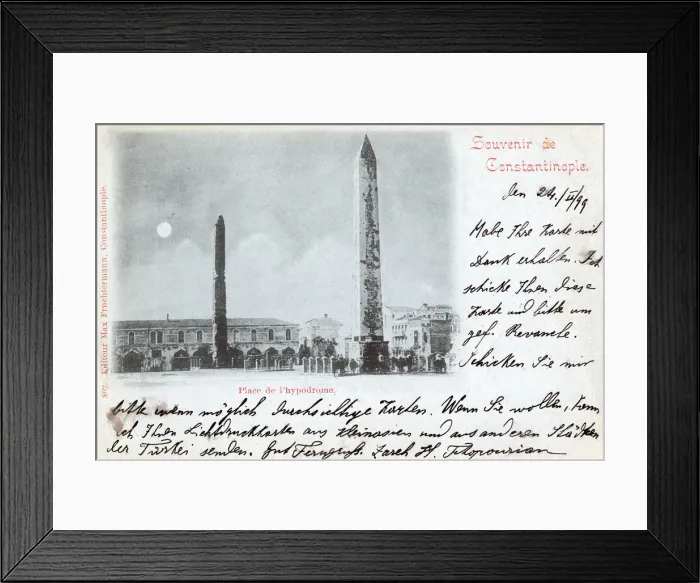 Souvenir de
Constantinople.
den 24./II/99
Habe Ihre Karte mit
Dank erhalten. Ich
schicke Ihnen diese
Karte und bitte um
gef. Revanche.
Schicken Sie mir
802. Editeur Max Fruchtermann, Constantinople.
Place de l'hypodrome.
bitte wenn möglich durchsichtige Karten. Wenn Sie wollen, kann
ich Ihnen Lichtdruckkarten aus Kleinasien und aus anderen Städten
der Türkei senden. Gut Ferngruß. Zareh H.